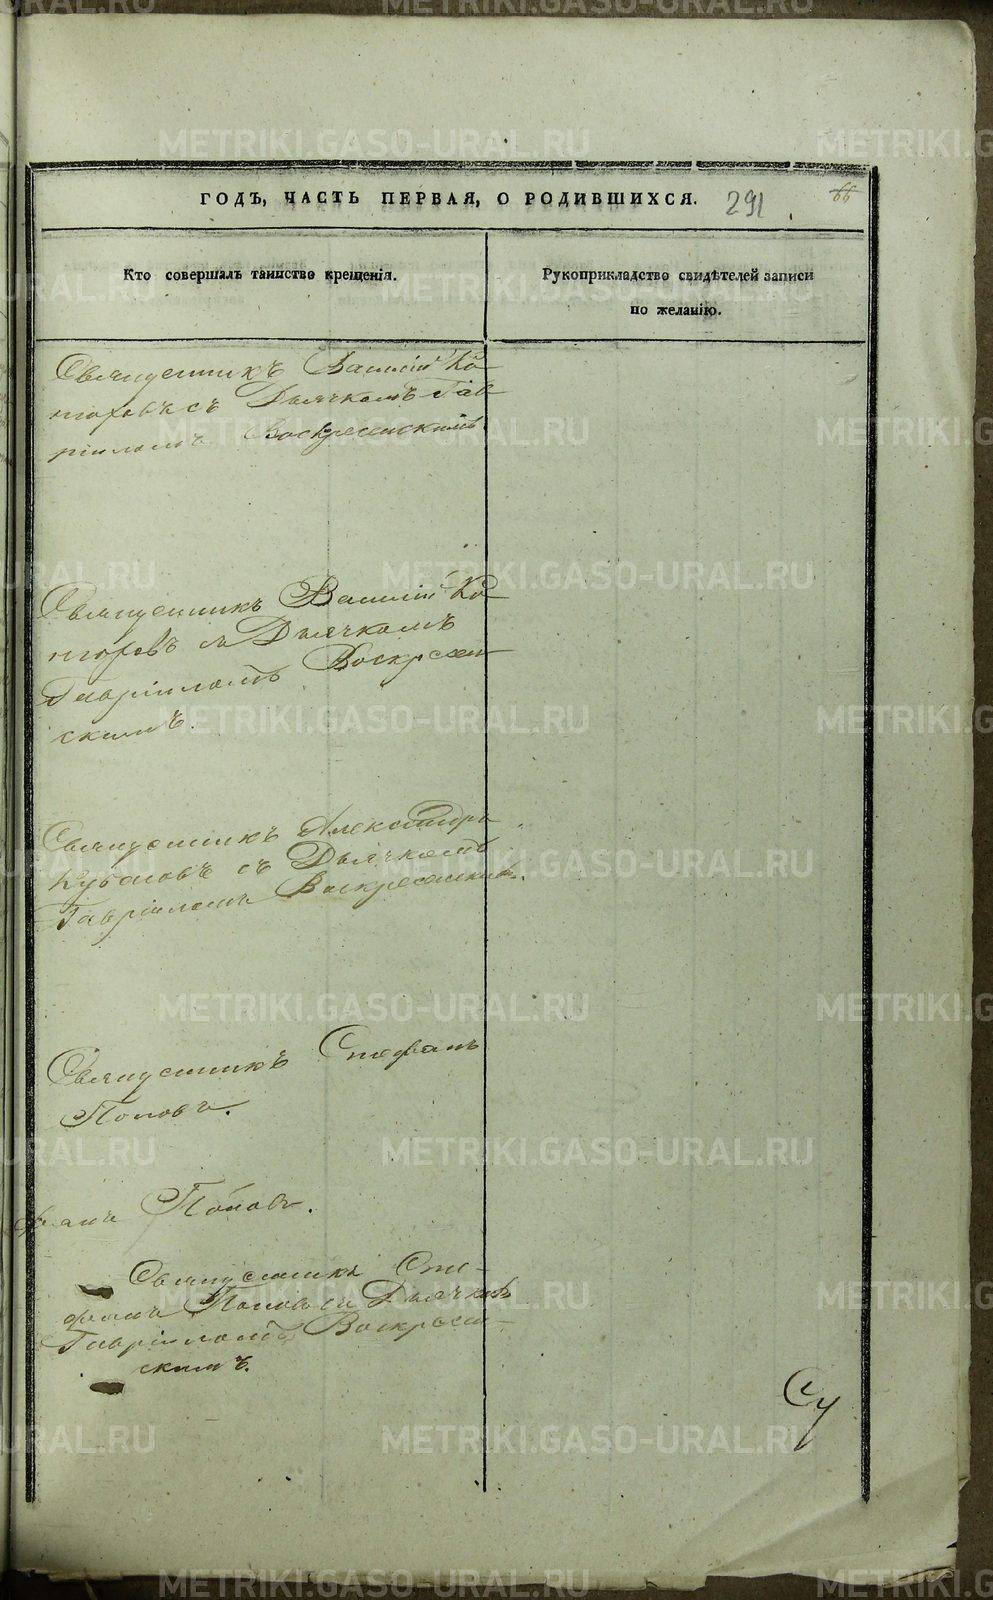 ГОДЪ, ЧАСТЬ ПЕРВАЯ, О РОДИВШИХСЯ. 291 66
Кто совершалъ таинство крещенія.
Рукоприкладство свидѣтелей записи
по желанію.
Священникъ Василій Ко-
торовъ съ Дьячкомъ Гав-
ріиломъ Воскресенскимъ
Священникъ Василій Ко-
торовъ съ Дьячкомъ
Гавріиломъ Воскресен-
скимъ.
Священникъ Александръ
съ Дьячкомъ
Гавріиломъ Воскресенским.
Священникъ Стефанъ
Поповъ.
фанъ Поповъ.
Священникъ Сте-
фанъ Поповъ съ Дьячкомъ
Гавріиломъ Воскресен-
скимъ.
METRIKI.GASO-URAL.RU